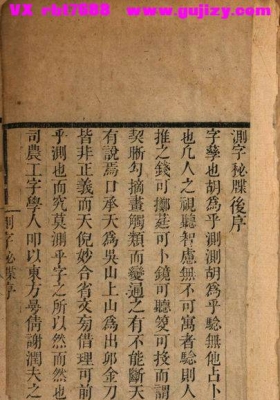 VX rbf7888 www.gujizy.com
測字秘牒後序
字孳也胡為乎測測胡為乎騐無他占卜
也凡人之視聽智慮無不可寓者騐則人
推之錢可擲莛可卜鏡可聽筊可投而謂
契脈勾摘畫觸類而變通之有不能斷天
有說焉口承天為吳山上山為出卯金刀
皆非正義而天倪妙合省文旁借理可前
乎測也而究莫測乎字之所以然而然也
司農工字學人叩以東方曼倩謝潤夫之
測字秘牒序